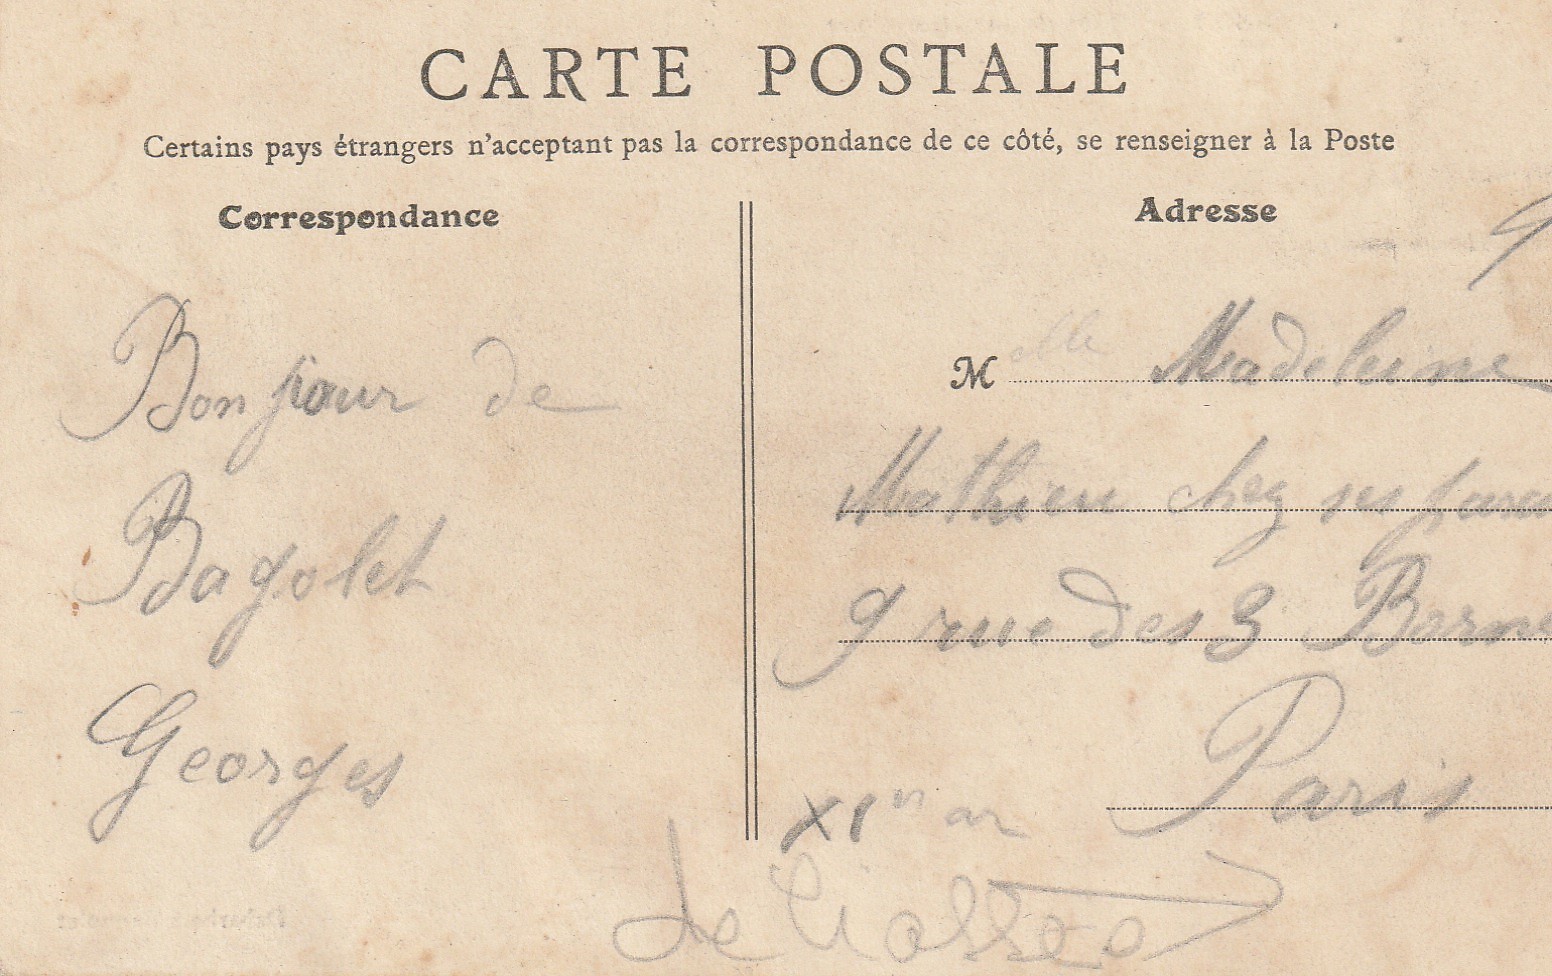 CARTE POSTALE
Certains pays étrangers n'acceptant pas la correspondance de ce côté, se renseigner à la Poste
Correspondance
Adresse
Bonjour de
Bagolet
Georges
9
M elle Madeleine
Mathieu chez ses paren
9 rue des 3 Borne
Paris
XIe ar
de